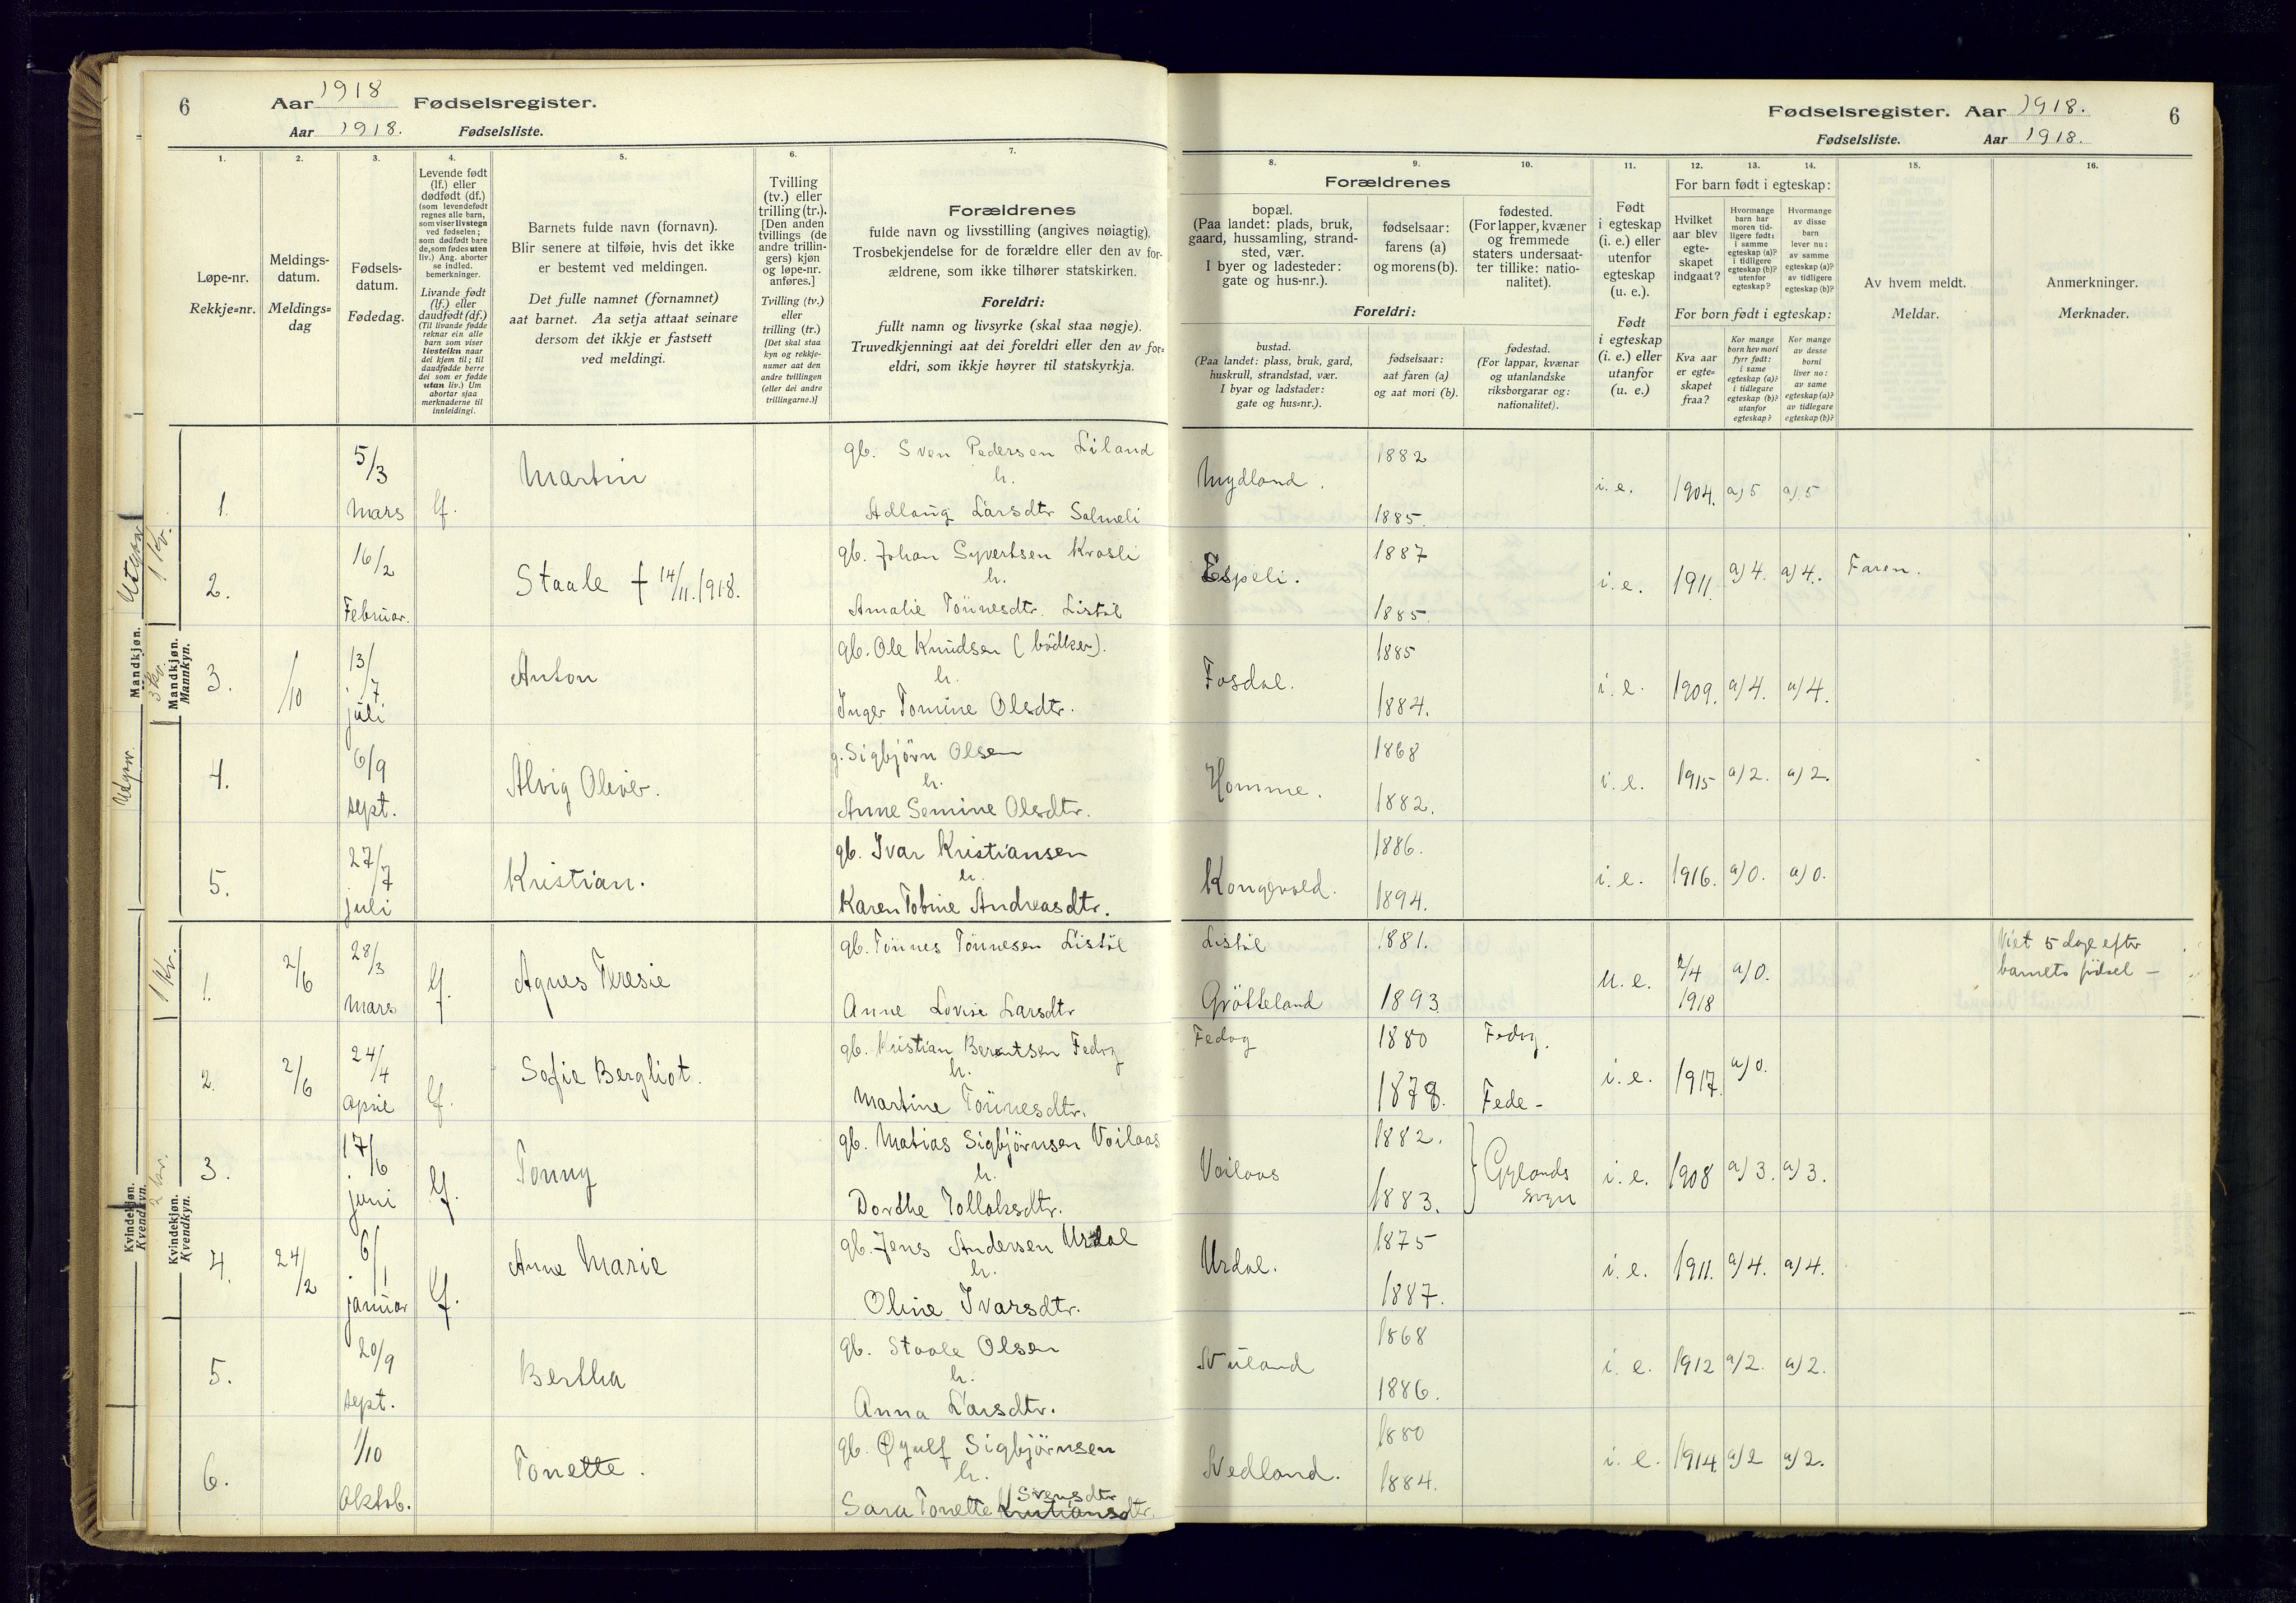 6 Aar 1918 Fødselsregister.
Aar 1918. Fødselsliste.
1. 2. 3. 4. 5. 6. 7.
Løpe-nr.
Rekkje=nr.
Meldings-
datum.
Meldings=
dag
Fødsels-
datum.
Fødedag.
Levende født
(lf.) eller
dødfødt (df.)
(som levendefødt
regnes alle barn,
som viser livstegn
ved fødselen;
som dødfødt bare
de, som fødes uten
liv.) Ang. aborter
se indled.
bemerkninger.
Livande født
(lf.) eller
daudfødt (df.)
(Til livande fødde
reknar ein alle
barn som viser
livsteikn naar
dei kjem til; til
daudfødde berre
dei som er fødde
utan liv.) Um
abortar sjaa
merknaderne til
innleidingi.
Barnets fulde navn (fornavn).
Blir senere at tilføie, hvis det ikke
er bestemt ved meldingen.
Det fulle namnet (fornamnet)
aat barnet. Aa setja attaat seinare
dersom det ikkje er fastsett
ved meldingi.
Tvilling
(tv.) eller
trilling (tr.).
[Den anden
tvillings (de
andre trillin-
gers) kjøn
og løpe-nr.
anføres.]
Tvilling (tv.)
eller
trilling (tr.)
[Det skal staa
kyn og rekkje-
numer aat den
andre tvillingen
(eller dei andre
trillingarne.)]
Forældrenes
fulde navn og livsstilling (angives nøiagtig).
Trosbekjendelse for de forældre eller den av for-
ældrene, som ikke tilhører statskirken.
Foreldri:
fullt namn og livsyrke (skal staa nøgje).
Truvedkjenningi aat dei foreldri eller den av for=
eldri, som ikkje høyrer til statskyrkja.
Mandkjøn.
Mannkyn.
1. 5/3 Mars lf. Martin gb. Sven Pedersen Liland
h.
Adlaug Larsdtr Salmeli
2. 16/2 Februar. Staale † 14/11. 1918. gb. Johan Syvertsen Kvosli
h.
Amalie Tönnesdtr. Listöl
3. /10 13/7 juli Anton gb. Ole Knudsen (bödker).
h.
Inger Tomine Olsdtr.
4. 6/9 sept. Alvig Oliver. g. Sigbjörn Olsen
h.
Anne Semine Olsdtr.
5. 27/7 juli Kristian. gb. Ivar Kristiansen
h.
Karen Tobine Andreasdtr.
Kvindekjøn.
Kvendkyn.
1. 2/6 28/3 Mars lf. Agnes Teresie gb. Tönnes Tönnesen Listöl
Anne Lovise Larsdtr
2. 2/6 24/4 April lf. Sofie Bergliot. gb. Kristian Berentsen Fedog
h.
Martine Tönnesdtr.
3. 17/6 juni lf. Tonny gb. Matias Sigbjörnsen Voilaas
h.
Dorthe Tollaksdtr.
4. 24/2 6/1 januar lf. Anne Marie gb. Jens Andersen Urdal
h.
Oline Ivarsdtr.
5. 20/9 sept. Bertha gb. Staale Olsen
h.
Anna Larsdtr.
6. 1/10 Oktob. Tonette. gb. Øyulf Sigbjörnsen
h.
Svensdtr
Sara Tonette Kristiansdtr.
Fødselsregister. Aar 1918. 6
Fødselsliste. Aar 1918.
8. 9. 10. 11. 12. 13. 14. 15. 16.
Forældrenes
bopæl.
(Paa landet: plads, bruk,
gaard, hussamling, strand-
sted, vær.
I byer og ladesteder:
gate og hus-nr.).
fødselsaar:
farens (a)
og morens (b).
fødested.
(For lapper, kvæner
og fremmede
staters undersaat-
ter tillike: natio-
nalitet).
Foreldri:
bustad.
(Paa landet: plass, bruk, gard,
huskrull, strandstad, vær.
I byar og ladstader:
gate og hus=nr.).
fødselsaar:
aat faren (a)
og aat mori (b).
fødestad.
(For lappar, kvænar
og utanlandske
riksborgarar og:
nationalitet).
Født
i egteskap
(i. e.) eller
utenfor
egteskap
(u. e.).
Født
i egteskap
(i. e.) eller
utanfor
(u. e.)
For barn født i egteskap:
Hvilket
aar blev
egte-
skapet
indgaat?
Hvormange
barn har
moren tid-
ligere født:
i samme
egteskap (a)?
i tidligere
egteskap (b)?
utenfor
egteskap?
Hvormange
av disse
barn
lever nu:
av samme
egteskap (a)?
av tidligere
egteskap (b)?
For born født i egteskap:
Kva aar
er egte=
skapet
fraa?
Kor mange
born hev mori
fyrr født:
i same
egteskap (a)?
i tidlegare
egteskap (b)?
utanfor
egteskap?
Kor mange
av desse
borni
liver no:
av same
egteskap (a)?
av tidlegare
egteskap (b)?
Av hvem meldt.
Meldar.
Anmerkninger.
Merknader.
Mydland. 1882 1885. i. e. 1904. a) 5 a) 5
Espeli. 1887 1885. i. e. 1911. a) 4. a) 4. Faren.
Fosdal. 1885 1884. i. e. 1909. a) 4. a) 4.
Homme. 1868 1882. i. e. 1915 a) 2. a) 2.
Kongevold. 1886. 1894. i. e. 1916. a) 0. a) 0.
Listöl 1881. Grötteland 1893. u. e. 2/4 1918 a) 0. Viet 5 dage efter
barnets födsel -
Fedog 1880 Fedog. 1878. Fede - i. e. 1917. a) 0.
Voilaas 1882. 1883. Gylands sogn i. e. 1908 a) 3. a) 3.
Urdal. 1875 1887. i. e. 1911. a) 4. a) 4.
Nuland 1868 1886. i. e. 1912 a) 2. a) 2.
Nedland. 1880 1884. i. e. 1914. a) 2 a) 2.